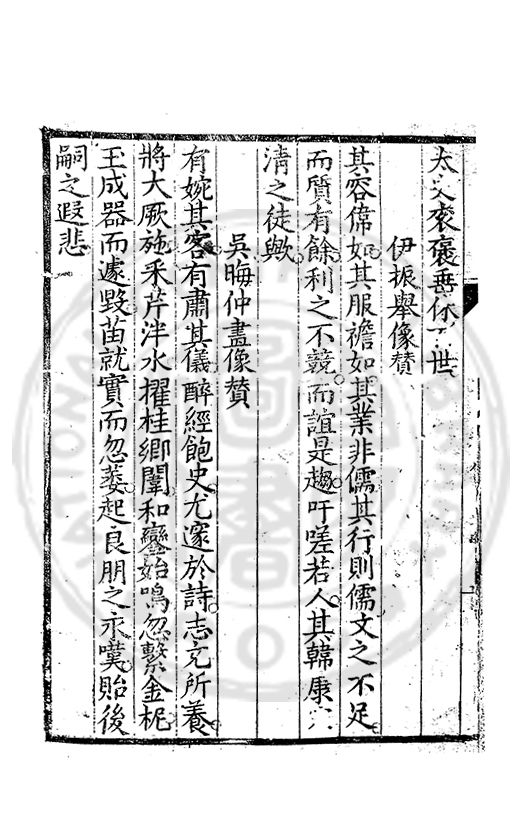 太 褒 垂 世
伊振舉像贊
其容偉如其服襜如其業非儒其行則儒文之不足
而質有餘利之不競而誼是趨吁嗟若人其韓康
清之徒歟
吳晦仲畫像贊
有婉其容有肅其儀醉經飽史尤邃於詩志充所養
將大厥施釆芹泮水擢桂鄉闈和鑾始鳴忽繫金柅
玉成器而遽毀苗就實而忽萎起良朋之永嘆貽後
嗣之遐悲